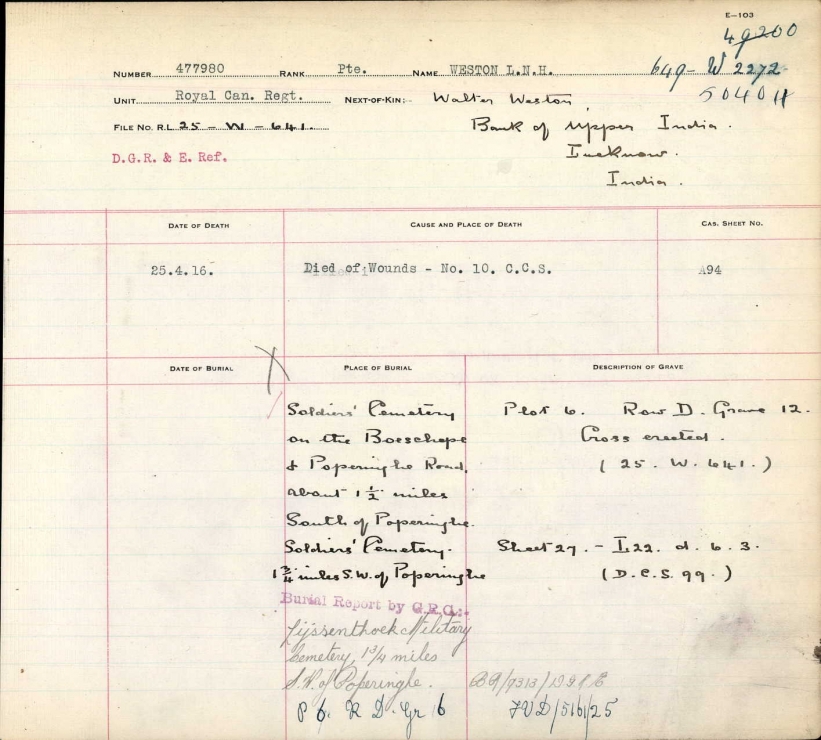 E-103
49200
NUMBER 477980 RANK Pte. NAME WESTON L.N.H. 649-W 2272
50404
UNIT Royal Can. Regt. NEXT-OF-KIN:- Walter Weston,
FILE No. R.L. 25 - W - 641. Bank of Upper India.
Lucknow.
India.
D.G.R. & E. Ref.
DATE OF DEATH CAUSE AND PLACE OF DEATH CAS. SHEET NO.
25.4.16. Died of Wounds - No. 10. C.C.S. A94
DATE OF BURIAL PLACE OF BURIAL DESCRIPTION OF GRAVE
Soldiers' Cemetery Plot 6. Row D. Grave 12.
on the Boeschepe Cross erected.
& Poperinghe Road, (25. W. 641.)
about 1 1/2 miles
South of Poperinghe.
Soldiers' Cemetery. Sheet 27. - L22. d. 6. 3.
1 3/4 miles S.W. of Poperinghe (D.C.S. 99.)
Burial Report by G.R.C.:-
Lijssenthoek Military
Cemetery, 1 3/4 miles
S.W. of Poperinghe.
P 6. R D. Gr 6 FVD/5161/25